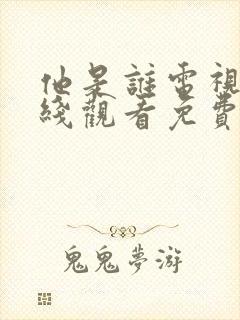 他是誰電視
綫觀看免費
鬼鬼夢游